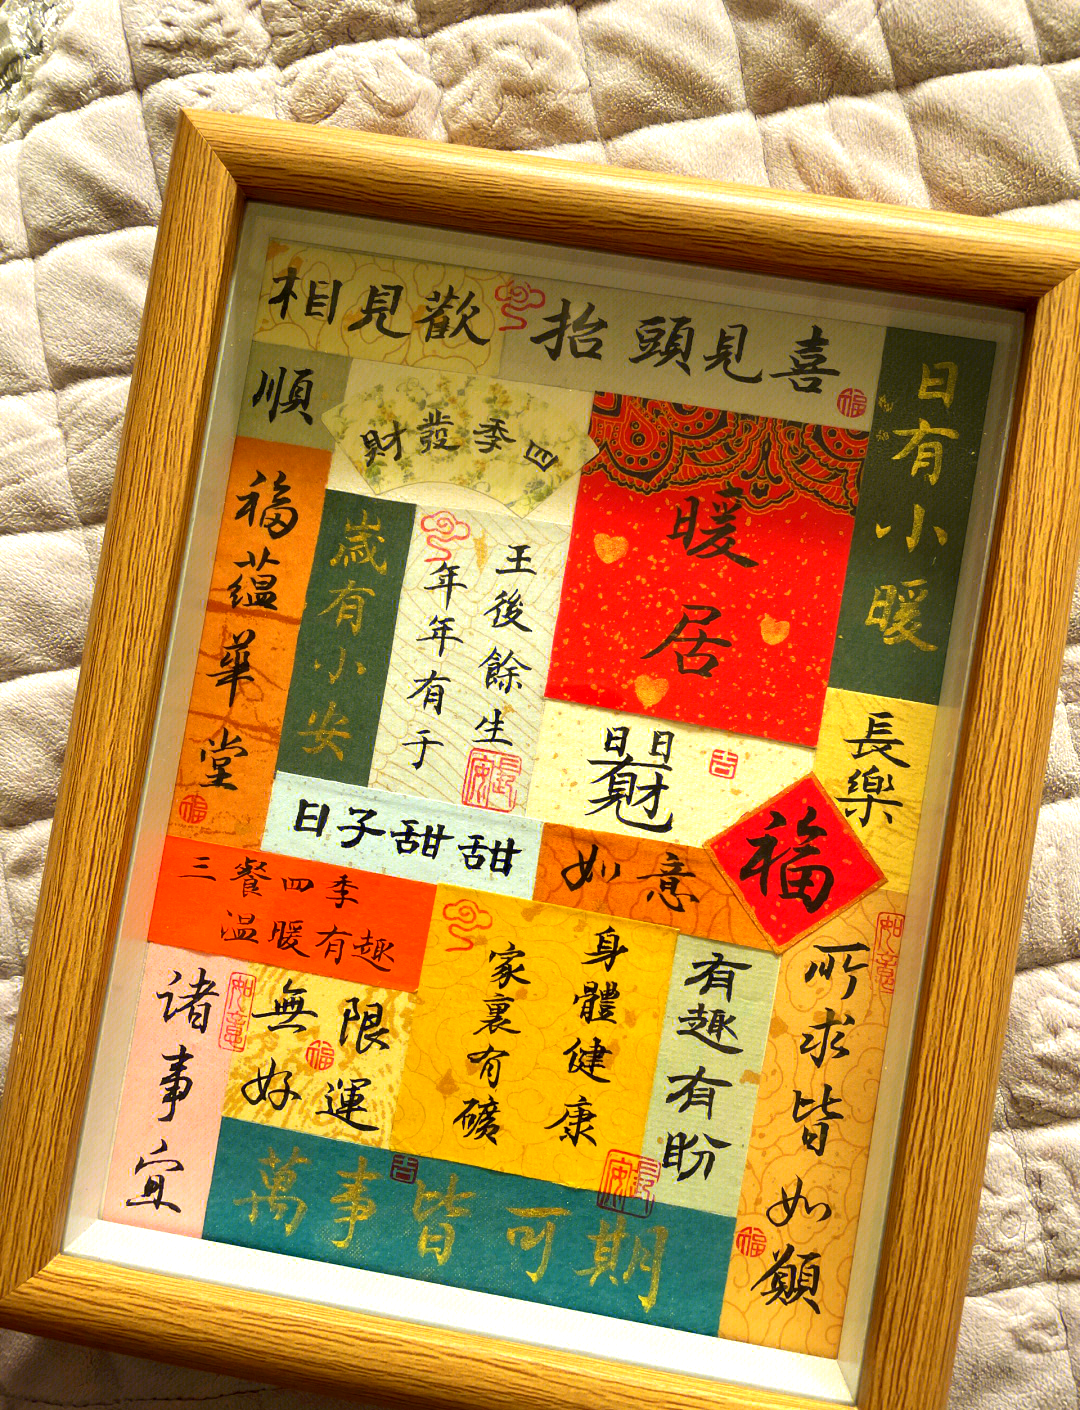 相見歡
抬頭見喜
福
日有小暖
順
四季發財
福蘊華堂
福
歲有小安
王後餘生
年年有于
長安
暖居
日日有財
吉
長樂
福
日子甜甜
如意
三餐四季
溫暖有趣
諸事宜
如意
無限
好運
福
身體健康
家裏有礦
長安
有趣有盼
所求皆如願
如意
福
萬事皆可期
吉